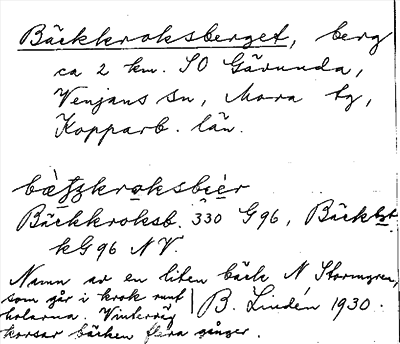 Bäckkroksberget, berg
ca 2 km. SO Gävunda,
Venjans sn, Mora tg,
Kopparb. län.
Bäckkroksb. 330 G96, Bäckbgt
kG96 NV
Namn av en liten bäck N Stormyren,
som går i krok runt
kolarna. Vinterväg
korsar bäcken flera gånger.
B. Lindén 1930.